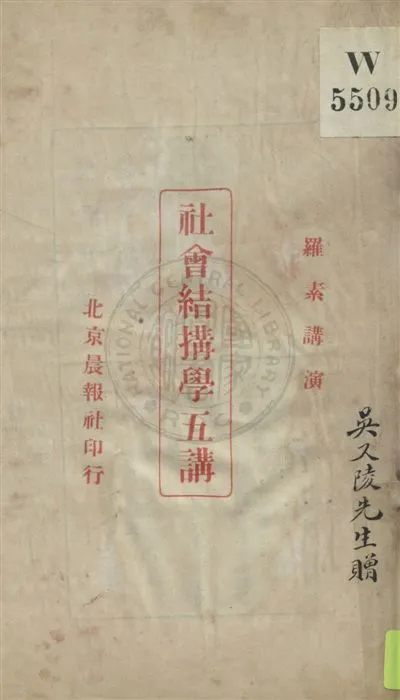 W
5509
羅素講演
社會結搆學五講
北京晨報社印行
吳又陵先生贈
NATIONAL CENTRAL LIBRARY